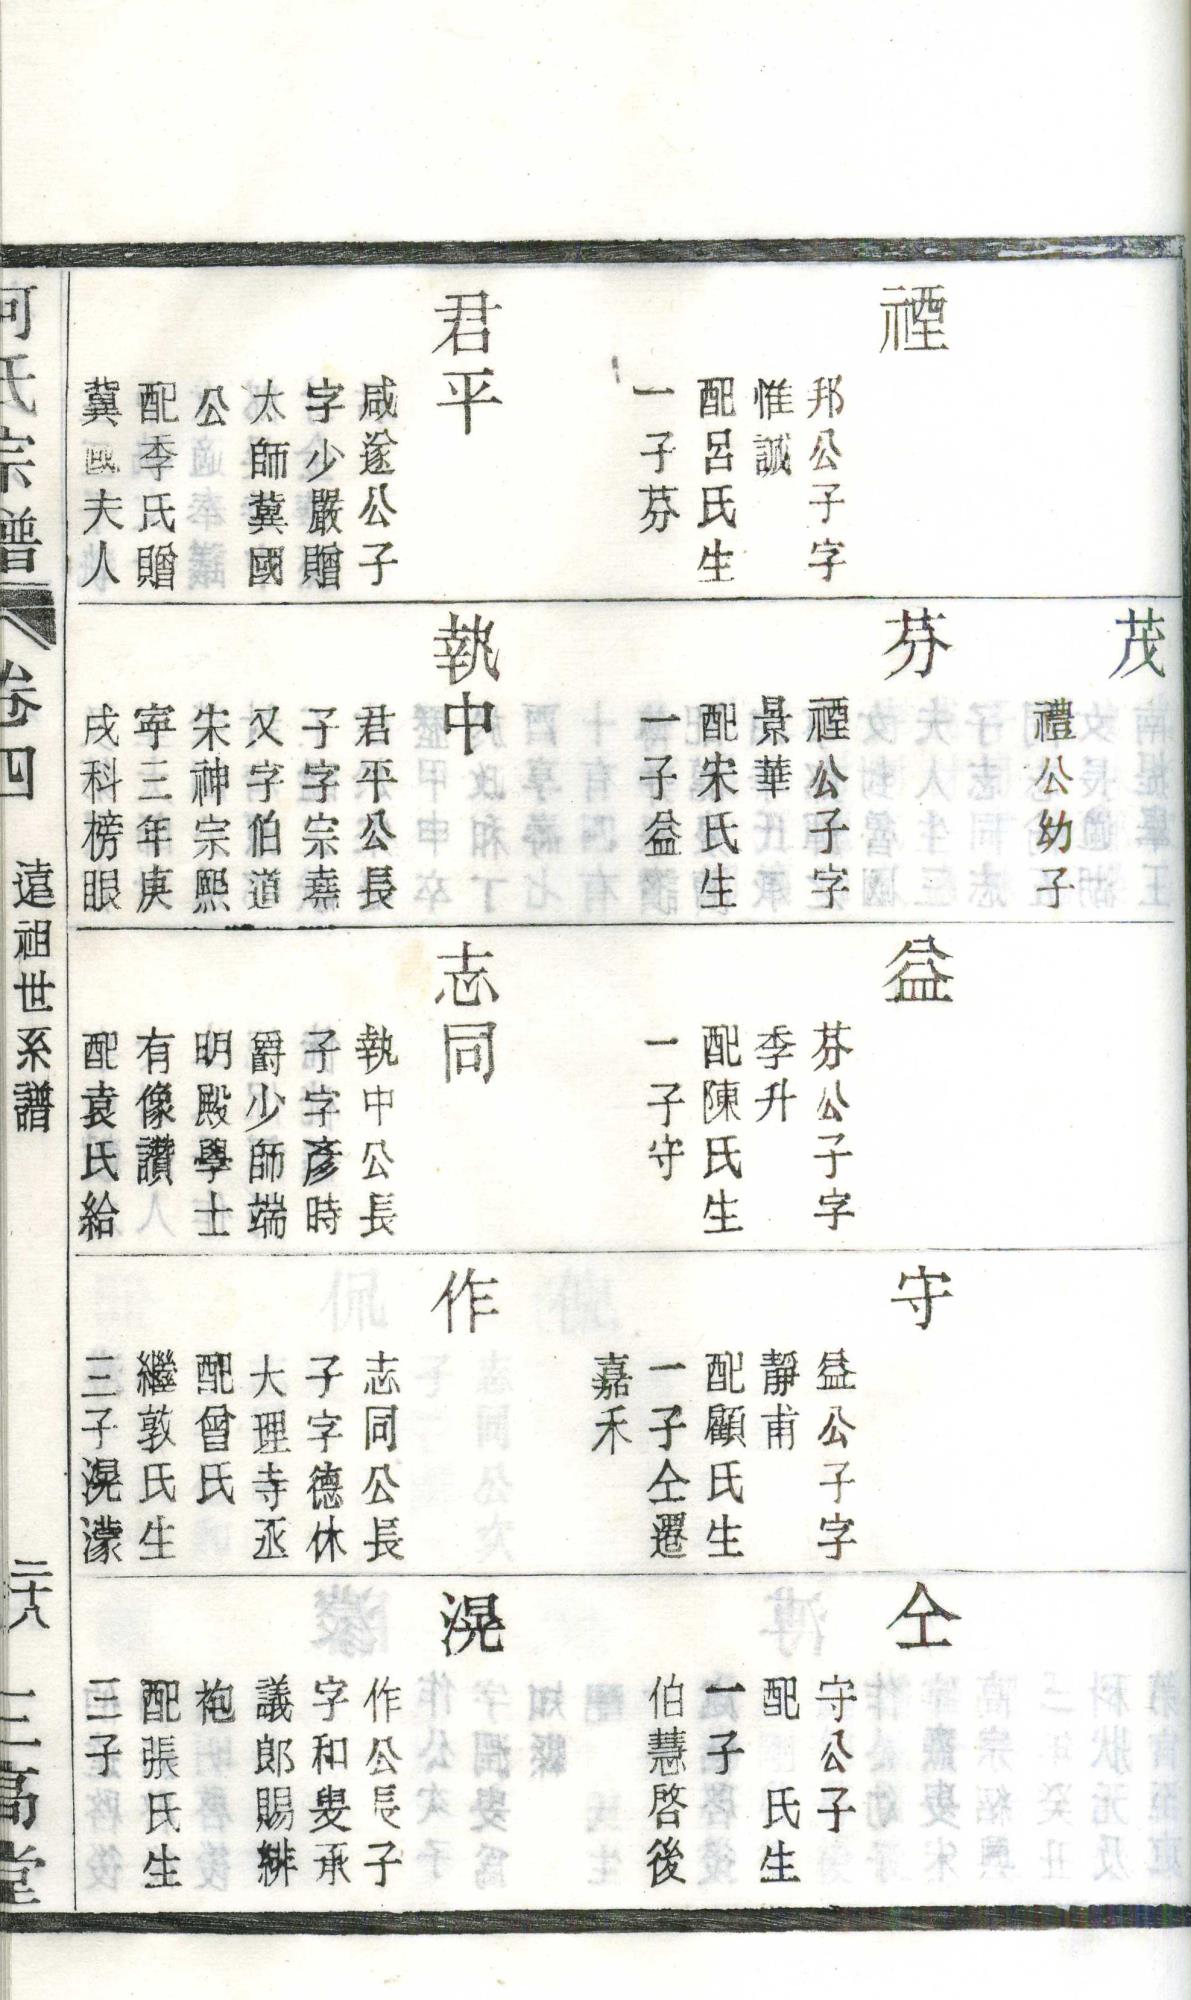 禋
邦公子字
惟誠
配呂氏生
一子芬
君平
咸遂公子
字少嚴贈
太師冀國
公
配李氏贈
冀國夫人
茂
禮公幼子
芬
禋公子字
景華
配宋氏生
一子益
執中
君平公長
子字宗堯
又字伯道
宋神宗熙
寧三年庚
戌科榜眼
益
芬公子字
季升
配陳氏生
一子守
志同
執中公長
子字彥時
爵少師端
明殿學士
有像讚
配袁氏給
守
益公子字
靜甫
配顧氏生
一子仝遷
嘉禾
作
志同公長
子字德休
大理寺丞
配曾氏
繼敦氏生
三子滉濛
仝
守公子
配 氏生
一子
伯慧啓後
滉
作公長子
字和叟承
議郎賜緋
袍
配張氏生
三子
何氏宗譜
卷四
遠祖世系譜
二十八
三高堂